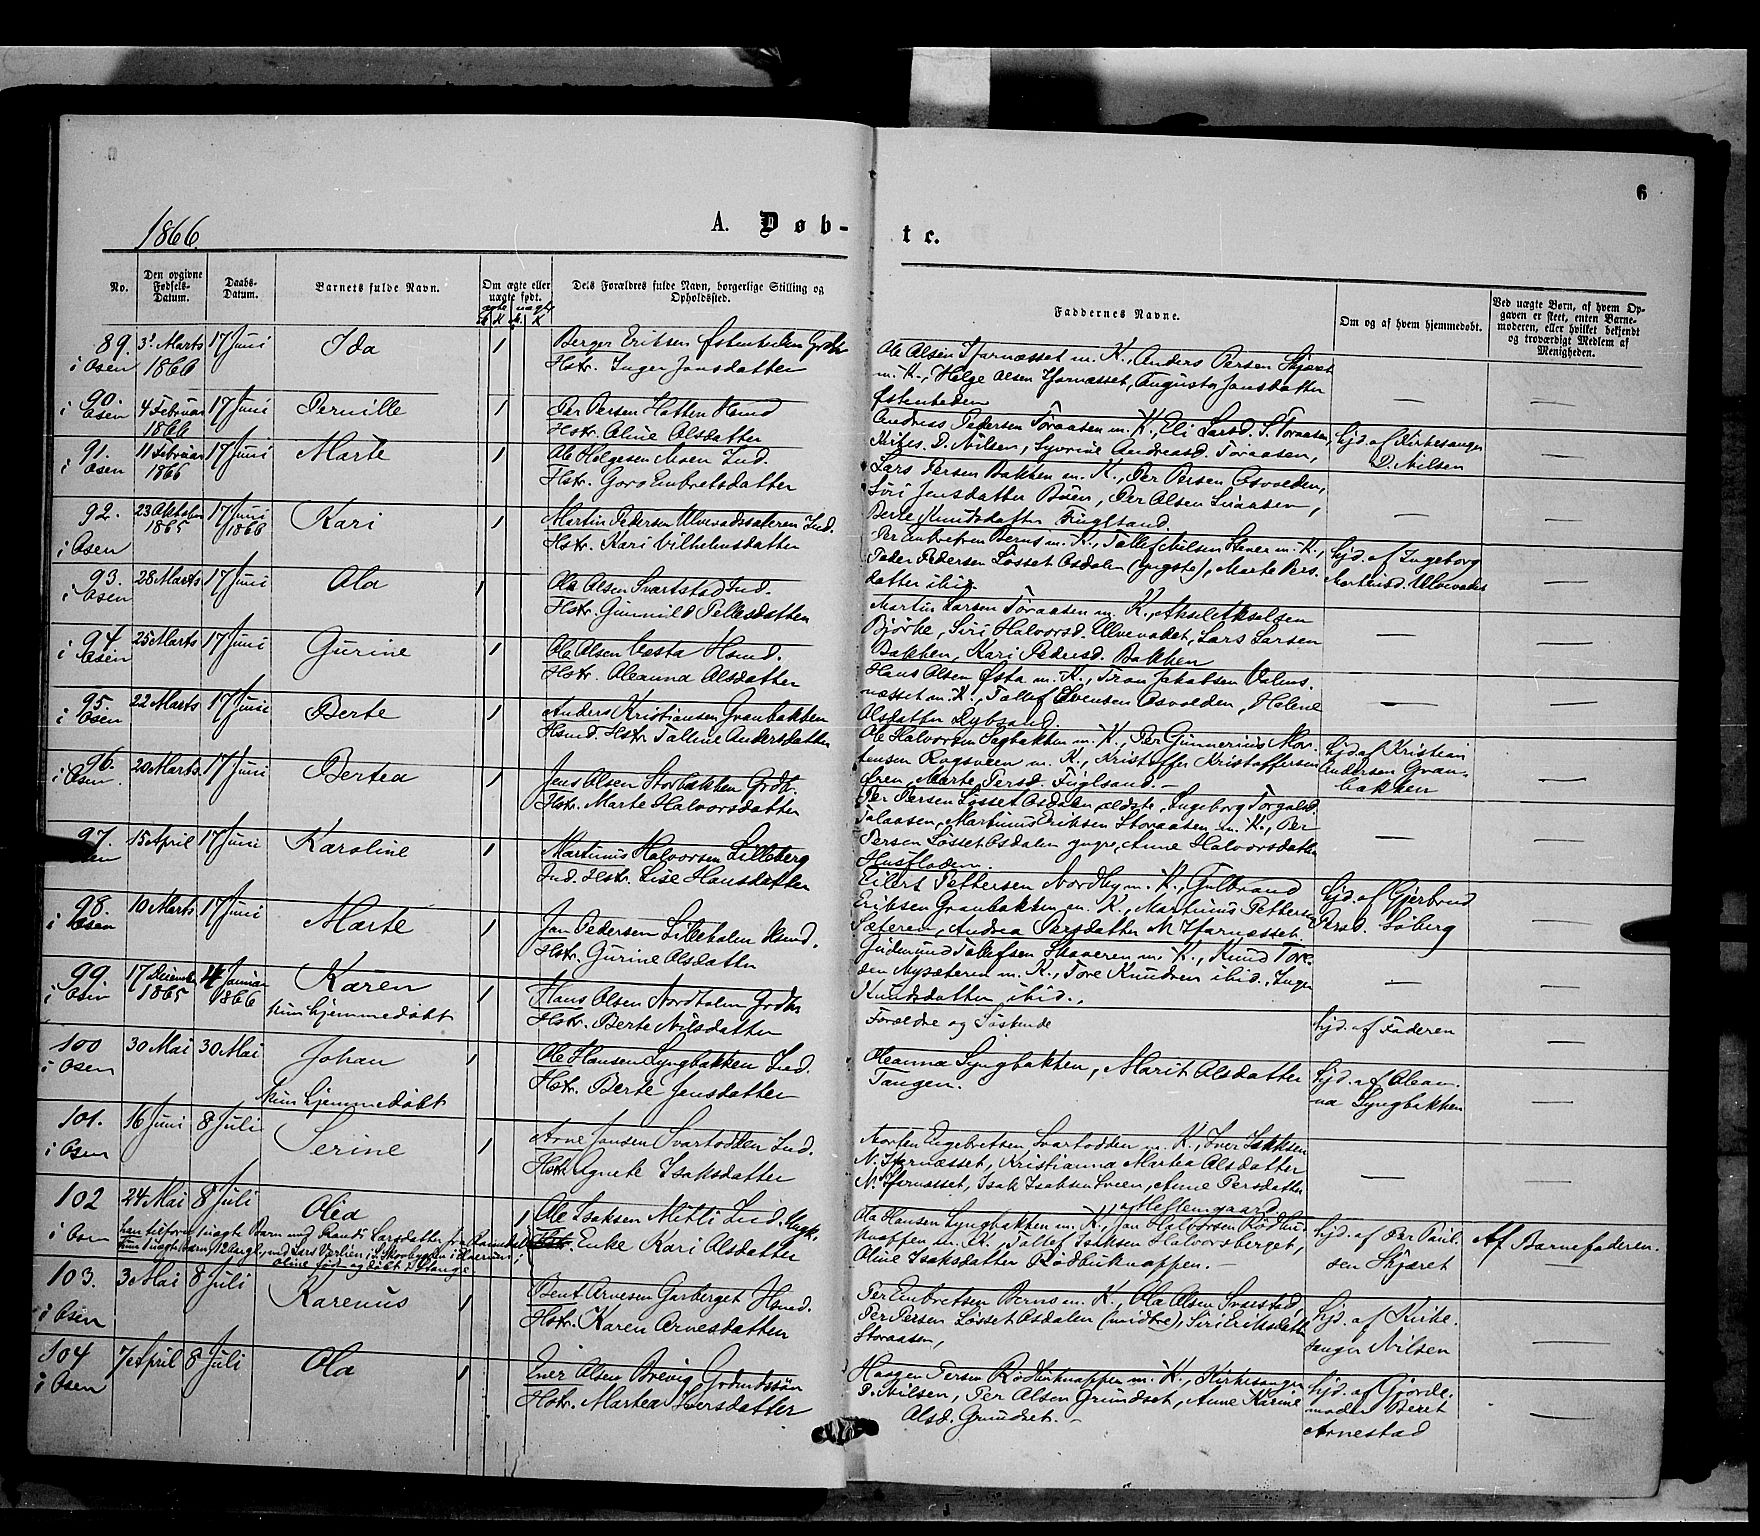 6
1866.
A. Døb-
te.
No.
Den opgivne Fødsels-Datum.
Daabs-Datum.
Barnets fulde Navn.
Om ægte eller uægte født.
ægte uægte
M. K. M. K.
Dets Forældres fulde Navn, borgerlige Stilling og Opholdssted.
Faddernes Navne.
Om og af hvem hjemmedøbt.
Ved uægte Børn, af hvem Opgaven er skeet, enten Barnemoderen, eller hvilket bekjendt og troværdigt Medlem af Menigheden.
89. i Osen
3' Marts 1866
17 Juni
Ida
1
Berger Eriksen Østenheden Grdbr
Hstr. Inger Jonsdatter
Ole Olsen Ifarnæsset m. K., Anders Persen Skjæret
m. K., Helge Olsen Ifarnæsset, Augusta Jonsdatter
Østenheden
—
—
90. i Osen
4 Februar 1866
17 Juni
Pernille
1
Per Persen Hatten Hsmd
Hstr. Oline Olsdatter
Andreas Pedersen Toraasen m. K., Eli Larsd. S. Toraasen,
Kirkes. D. Nilsen, Syverine Andreasd. Toraasen,
hjd. af Kirkesanger
D. Nilsen
—
91. i Osen
11 Februar 1866
17 Juni
Marte
1
Ole Helgesen Moen Ind.
Hstr. Goro Embretsdatter
Lars Persen Bakken m. K., Per Persen Osvolden,
Siri Jensdatter Buen, Per Olsen
Berte Knudsdatter Fuglsand.
—
—
92. i Osen
23 Oktober 1865
17 Juni 1866
Kari
1
Martin Pedersen Ulvevadssæteren Ind.
Hstr. Kari Vilhelmsdatter
Per Embretsen Berns m. K., Tollef Nilsen Stener m. K.,
Peder Pedersen Løsset Osdalen (yngste), Marte Pers-
datter ibid.
hjd. af Ingeborg
Martinsd. Ulvevadet
—
93. i Osen
28 Marts
17 Juni
Ola
1
Ole Olsen Svartstad Ind.
Hstr. Gunnild Pellesdatter
Martin Larsen Toraasen m. K., Aksel Akselsen
Bjørke, Siri Halvorsd. Ulvevadet, Lars Larsen
Bakken, Kari Pedersd. Bakken
—
—
94 i Osen
25 Marts
17 Juni
Gurine
1
Ole Olsen Væsta Hsmd.
Hstr. Oleanna Olsdatter
Hans Olsen Østa m. K., Tron Jakobsen Valms-
næsset m. K., Tollef Evensen Osvolden, Helene
Olsdatter Rybsand.
—
—
95. i Osen
22 Marts
17 Juni
Berte
1
Anders Kristiansen Granbakken
Hsmd. Hstr. Talline Andersdatter
Ole Halvorsen Sagbakken m. K., Per Gunnerius Mor-
tensen Rogsveen m. K., Kristoffer Kristoffersen
Øren, Marte Persd. Fuglsand. —
hjd. af Kristian
Andersen Gran-
bakken
—
96. i Osen
20 Marts
17 Juni
Bertea
1
Jens Olsen Storbakken Grdbr.
Hstr. Marte Halvorsdatter
Per Persen Løsset Osdalen ældste, Ingeborg Torgalsd.
Martinus Eriksen Storaasen m. K., Per
Persen Løsset Osdalen yngre, Anne Halvorsdatter
Husfloden.
—
—
97. Osen
15 April
17 Juni
Karoline
1
Martinus Halvorsen Lilleberg
Ind. Hstr. Lise Hansdatter
Eilert Pettersen Nordby m. K., Gulbrand
Eriksen Granbakken m. K., Martinus Pettersen
Sæteren, Andrea Persdatter N. Ifarnæsset
hjd. af Gjerbrud
Persd. Søberg
—
98. i Osen
10 Marts
17 Juni
Marte
1
Jon Pedersen Lilleholm Hsmd.
Hstr. Gurine Olsdatter
Gudmund Tollefsen Skaveren m. K., Knud Tore-
sen Nysæteren m. K., Tore Knudsen ibid., Inger
Knudsdatter ibid.,
—
—
99 i Osen
17 December 1865
4 Januar 1866
Karen
kun hjemmedøbt
1
Hans Olsen Nordholm Grdbr
Hstr. Berte Nilsdatter
Forældre og Søskende
hjd. af Faderen
—
100 i Osen
30 Mai
30 Mai
Johan
kun hjemmedøbt
1
Ole Hansen Lyngbakken Ind.
Hstr. Berte Jensdatter
Oleanna Lyngbakken, Marit Olsdatter
Tangen.
hjd. af Olean-
na Lyngbakken
—
101. i Osen
16 Juni
8 Juli
Serine
1
Arne Jonsen Svartodden Ind.
Hstr. Agnete Isaksdatter
Morten Engebretsen Svartodden m. K., Iver Isaksen
N. Ifarnæsset, Kristianna Martea Olsdatter
N. Ifarnæsset, Isak Isaksen Sveen, Anne Persdatter
Heftemgaard.
—
—
102 i Osen
24 Mai
8 Juli
Olea
1
Ole Isaksen Mitti Ind. Ungk.
Enke Kari Olsdatter
Ola Hansen Lyngbakken m. K., Jon Halvorsen Rødbu-
knappen m. K., Tollef Isaksen Halvorsberget,
Oline Isaksdatter Rødbuknappen. —
hjd. af Per Paul-
sen Skjæret
Af Barnefaderen.
—
103. i Osen
3 Mai
8 Juli
Karenus
1
Bent Arnesen Garberget Hsmd.
Hstr. Karen Arnesdatter
Per Embretsen Berns m. K., Ola Olsen Svarstad,
Per Persen Løsset Osdalen (midtre), Siri Eriksdatter
Storaasen,
hjd. af Kirke-
sanger Nilsen
—
104 i Osen
7 April
8 Juli
Ola
1
Iver Olsen Brevig Grdmdssøn
Hstr. Martea Iversdatter
Haagen Persen Rødbuknappen m. K., Kirkesanger
D. Nilsen, Per Olsen Grundset, Anne Karine
Olsd. Grundset. —
hjd. af Gjorde-
moder Beret
Arnestad
—